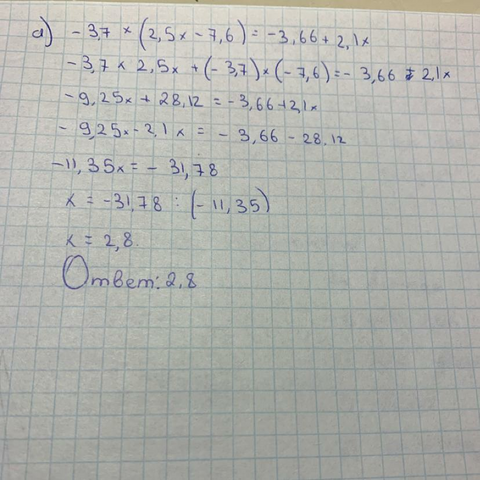 а) - 3,7 × (2,5x - 7,6) = -3,66 + 2,1x
- 3,7 × 2,5x + (- 3,7) × (- 7,6) = - 3,66 + 2,1x
- 9,25x + 28,12 = -3,66 + 2,1x
- 9,25x - 2,1x = - 3,66 - 28,12
-11,35x = - 31,78
x = -31,78 : (- 11,35)
x = 2,8.
Ответ: 2,8